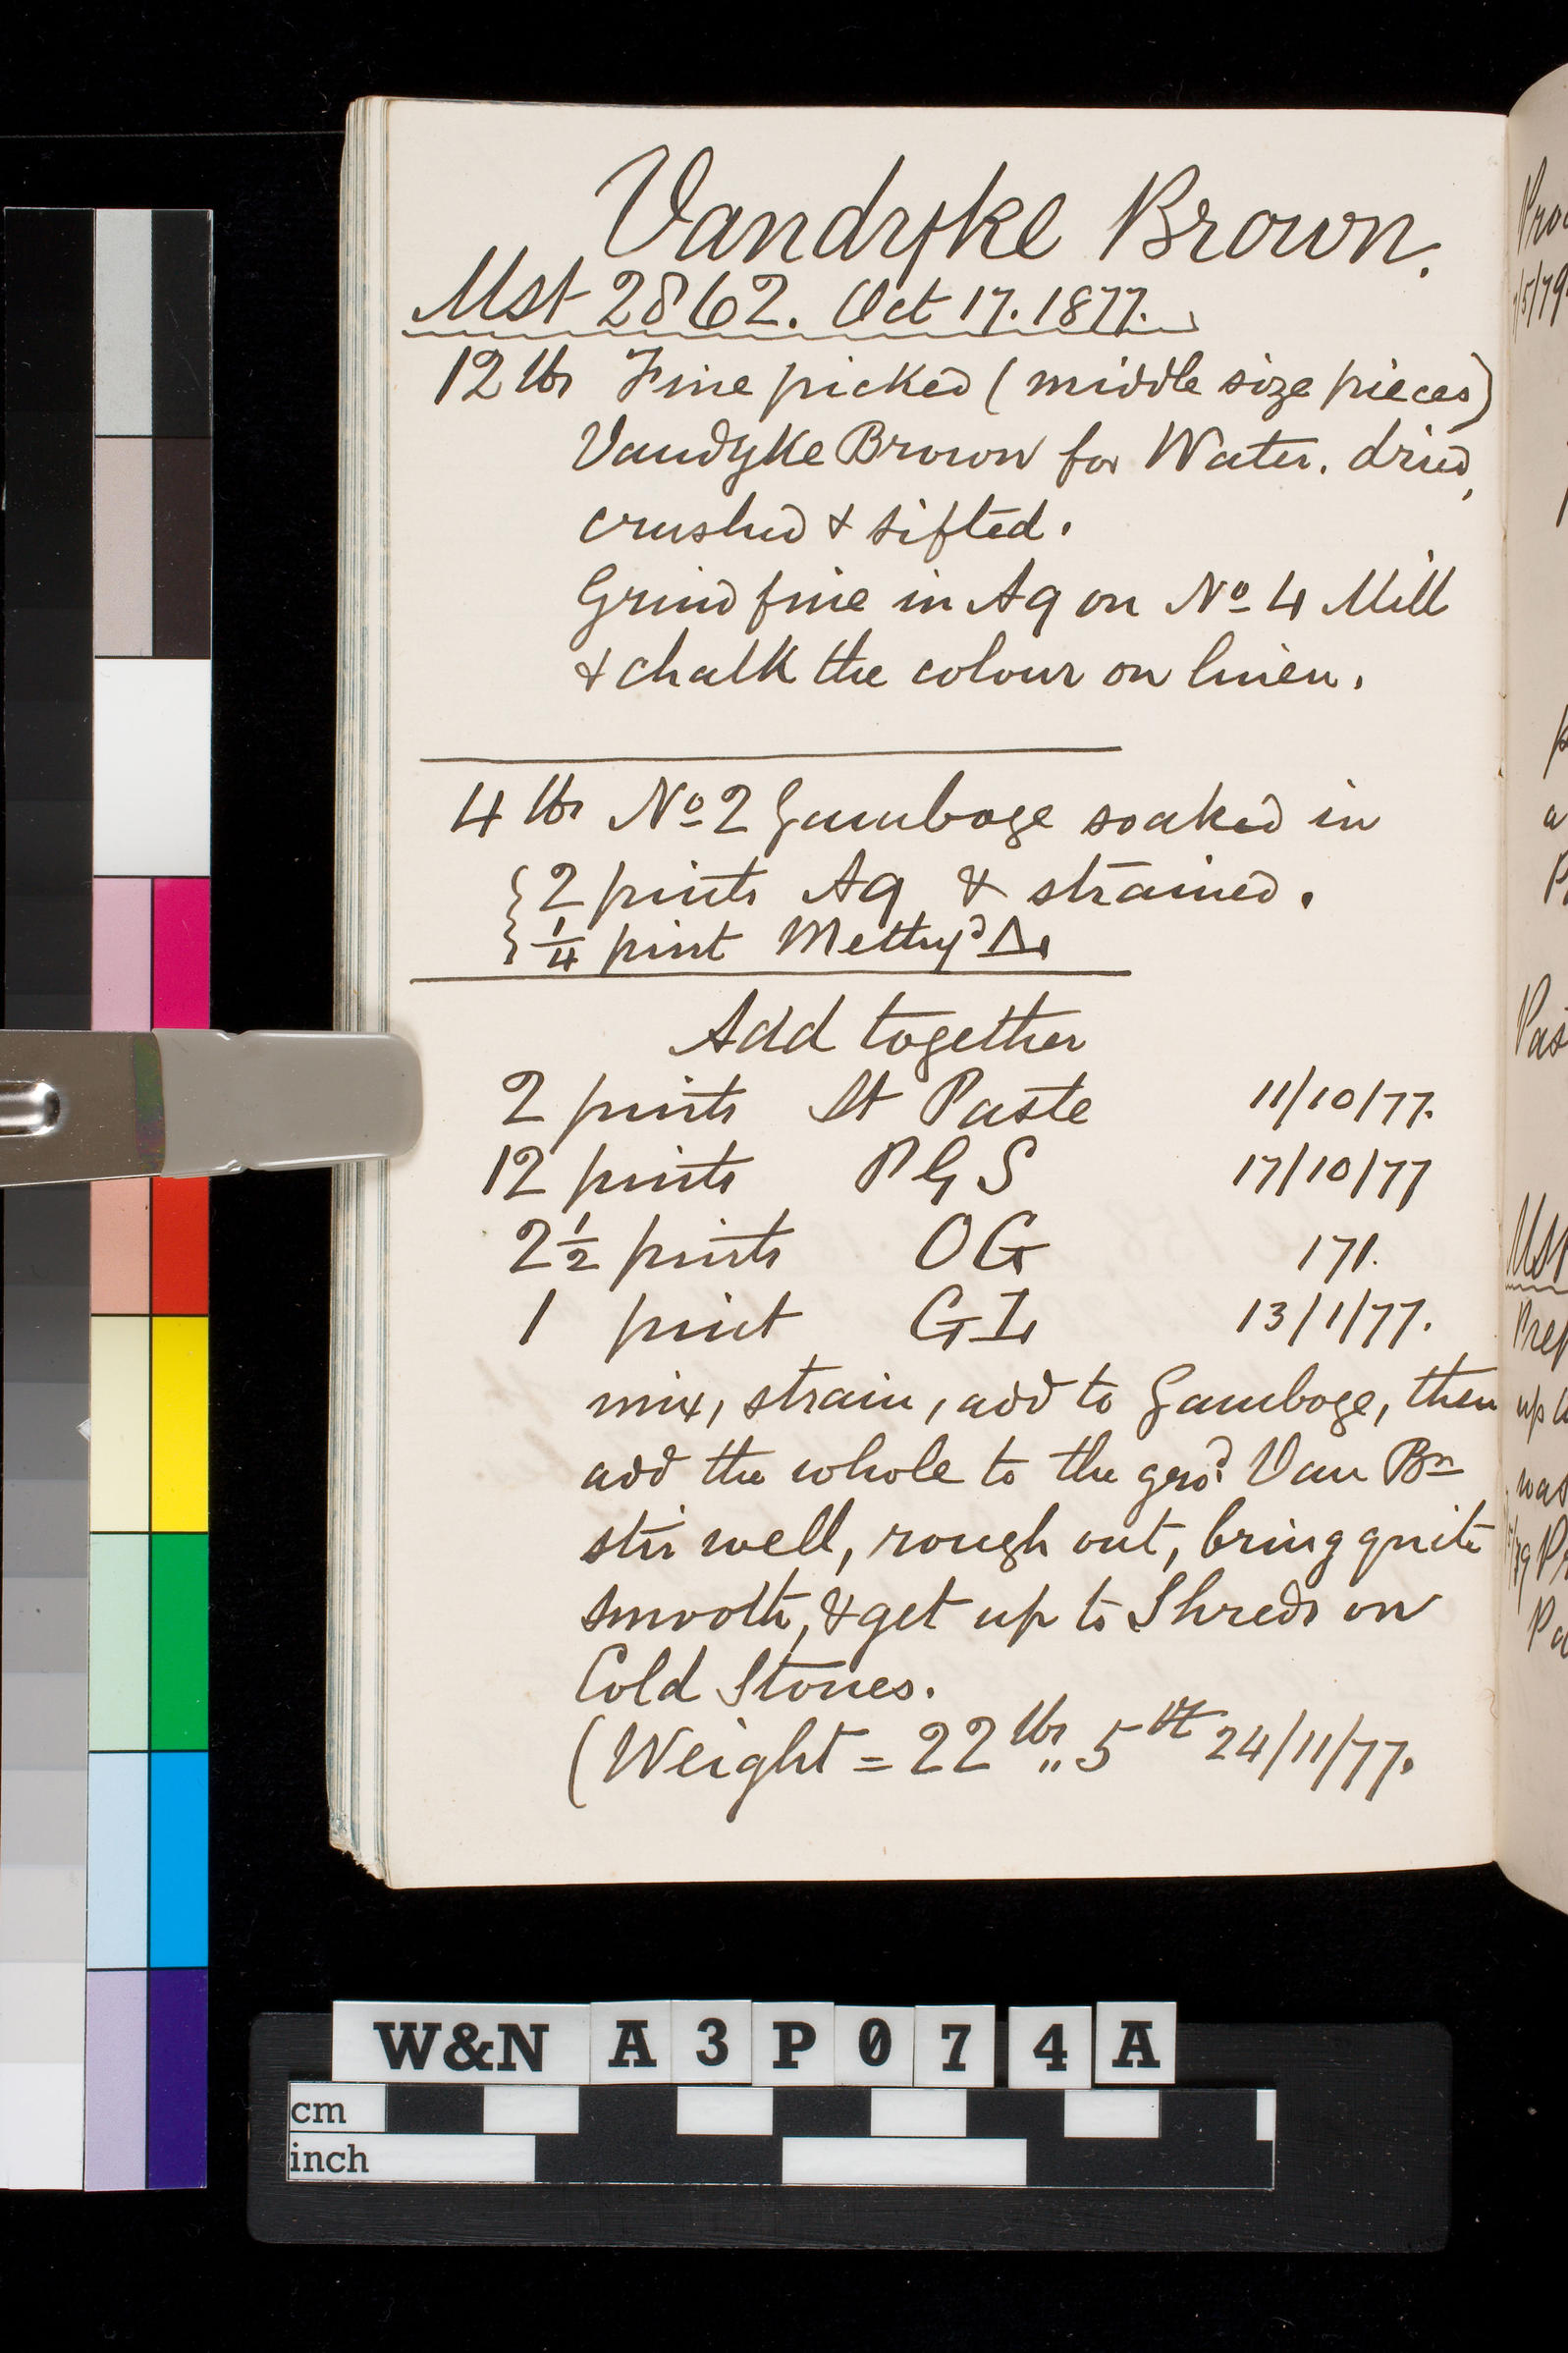 Vandyke Brown.
Mst 2862. Oct 17. 1877.
12 lbs Fine picked (middle size pieces)
Vandyke Brown for Water. dried,
crushed & sifted.
Grind fine in Aq on Nº 4 Mill
& chalk the colour on linen.
4 lbs Nº 2 Gamboge soaked in
{ 2 pints Aq & strained.
{ 1/4 pint Methyd Δ.
Add together
2 pints St Paste 11/10/77.
12 pints P G S 17/10/77
2 1/2 pints OG 171.
1 pint GI. 13/1/77.
mix, strain, add to Gamboge, then
add the whole to the grod Van Bn
stir well, rough out, bring quite
smooth, & get up to Shreds on
Cold Stones.
(Weight = 22 lbs .. 5 24/11/77.
W&N A 3 P 0 7 4 A
cm
inch